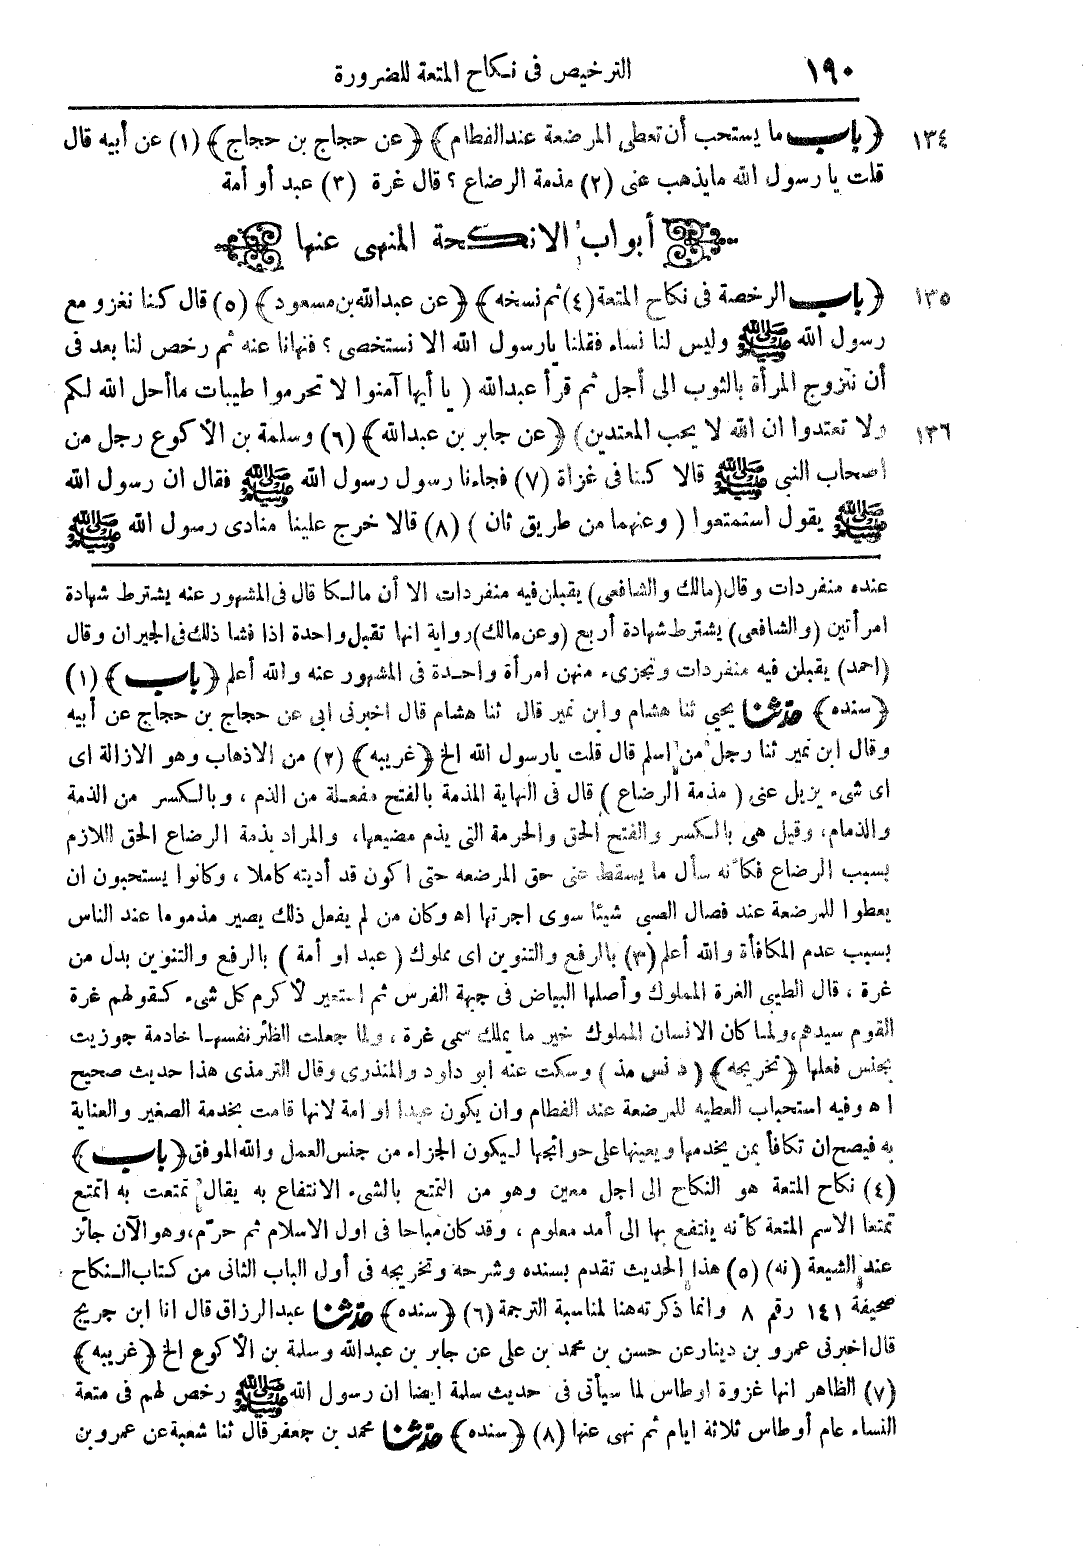 ١٩٠ الترخيص فى نكاح المتعة للضرورة
١٣٤ ﴿باب ما يستحب أن تعطى المرضعة عند الفطام﴾ ﴿عن حجاج بن حجاج﴾ (١) عن أبيه قال
قلت يا رسول الله مايذهب عنى (٢) مذمة الرضاع ؟ قال غرة (٣) عبد أو أمة
أبواب الانكحة المنهى عنها
١٣٥ ﴿باب الرخصة فى نكاح المتعة (٤) ثم نسخه﴾ ﴿عن عبدالله بن مسعود﴾ (٥) قال كنا نغزو مع
رسول الله ﷺ وليس لنا نساء فقلنا يارسول الله الا نستخصى ؟ فنهانا عنه ثم رخص لنا بعد فى
أن نتزوج المرأة بالثوب الى أجل ثم قرأ عبدالله ( يا أيها آمنوا لا تحرموا طيبات ماأحل الله لكم
١٣٦ ولا تعتدوا ان الله لا يحب المعتدين) ﴿عن جابر بن عبدالله﴾ (٦) وسلمة بن الأكوع رجل من
اصحاب النبى ﷺ قالا كنا فى غزاة (٧) فجاءنا رسول رسول الله ﷺ فقال ان رسول الله
ﷺ يقول استمتعوا ( وعنهما من طريق ثان ) (٨) قالا خرج علينا منادى رسول الله ﷺ
عنده منفردات وقال (مالك والشافعى) يقبلن فيه منفردات الا أن مالكا قال فى المشهور عنه يشترط شهادة
امرأتين (والشافعى) يشترط شهادة أربع (وعن مالك) رواية انها تقبل واحدة اذا فشا ذلك فى الجيران وقال
(احمد) يقبلن فيه منفردات وتجزىء منهن امرأة واحدة فى المشهور عنه والله أعلم ﴿باب﴾ (١)
﴿سنده﴾ حدثنا يحيي ثنا هشام وابن نمير قال ثنا هشام قال اخبرنى ابى عن حجاج بن حجاج عن أبيه
وقال ابن نمير ثنا رجل من اسلم قال قلت يارسول الله الخ ﴿غريبه﴾ (٢) من الاذهاب وهو الازالة اى
اى شىء يزيل عنى ( مذمة الرضاع ) قال فى النهاية المذمة بالفتح مفعلة من الذم ، وبالكسر من الذمة
والذمام، وقيل هى بالكسر والفتح الحق والحرمة التى يذم مضيعها، والمراد بذمة الرضاع الحق اللازم
بسبب الرضاع فكأنه سأل ما يسقط عنى حق المرضعه حتى اكون قد أديته كاملا ، وكانوا يستحبون ان
يعطوا للمرضعة عند فصال الصبى شيئا سوى اجرتها اه وكان من لم يفعل ذلك يصير مذموما عند الناس
بسبب عدم المكافأة والله أعلم (٣) بالرفع والتنوين اى مملوك ( عبد او أمة ) بالرفع والتنوين بدل من
غرة ، قال الطيبى الغرة المملوك وأصلها البياض فى جبهة الفرس ثم استعير لأكرم كل شىء كقولهم غرة
القوم سيدهم، ولما كان الانسان المملوك خير ما يملك سمى غرة ، ولما جعلت الظئر نفسها خادمة جوزيت
بجنس فعلها ﴿تخريجه﴾ ( د نس مذ ) وسكت عنه ابو داود والمنذرى وقال الترمذى هذا حديث صحيح
اه وفيه استحباب العطيه للمرضعة عند الفطام وان يكون عبدا او امة لانها قامت بخدمة الصغير والعناية
به فيصح ان تكافأ بمن يخدمها ويعينها على حوائجها ليكون الجزاء من جنس العمل والله الموفق ﴿باب﴾
(٤) نكاح المتعة هو النكاح الى اجل معين وهو من التمتع بالشىء الانتفاع به يقال تمتعت به اتمتع
تمتعا الاسم المتعة كأنه ينتفع بها الى أمد معلوم ، وقد كان مباحا فى اول الاسلام ثم حرّم، وهو الآن جائز
عند الشيعة (نه) (٥) هذا الحديث تقدم بسنده وشرحه وتخريجه فى أول الباب الثانى من كتاب النكاح
صحيفة ١٤١ رقم ٨ وانما ذكرته هنا لمناسبة الترجمة (٦) ﴿سنده﴾ حدثنا عبدالرزاق قال انا ابن جريج
قال اخبرنى عمرو بن دينار عن حسن بن محمد بن على عن جابر بن عبدالله وسلمة بن الأكوع الخ ﴿غريبه﴾
(٧) الظاهر انها غزوة اوطاس لما سيأتى فى حديث سلمة ايضا ان رسول الله ﷺ رخص لهم فى متعة
النساء عام أوطاس ثلاثة ايام ثم نهى عنها (٨) ﴿سنده﴾ حدثنا محمد بن جعفر قال ثنا شعبة عن عمرو بن